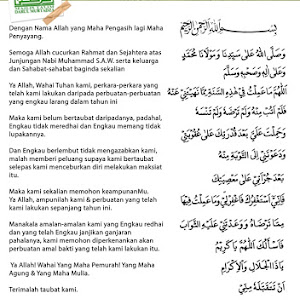 Dengan Nama Allah yang Maha Pengasih lagi Maha
Penyayang.
Semoga Allah cucurkan Rahmat dan Sejahtera atas
Junjungan Nabi Muhammad S.A.W. serta keluarga
dan Sahabat-sahabat baginda sekalian
Ya Allah, Wahai Tuhan kami, perkara-perkara yang
telah kami lakukan daripada perbuatan-perbuatan
yang engkau larang dalam tahun ini
Maka kami belum bertaubat daripadanya, padahal,
Engkau tidak meredhai dan Engkau memang tidak
lupakannya.
Dan Engkau berlembut tidak mengazabkan kami,
malah memberi peluang supaya kami bertaubat
selepas kami menceburkan diri melakukan maksiat
itu.
Maka kami sekalian memohon keampunanMu.
Ya Allah, ampunilah kami & perbuatan-perbuatan yang
telah kami lakukan sepanjang tahun ini.
Manakala amalan-amalan kami yang Engkau redhai
dan yang telah Engkau janjikan ganjaran
pahalanya, kami memohon diperkenankan akan
perbuatan amal bakti yang telah kami lakukan itu.
Ya Allah! Wahai Yang Maha Pemurah! Yang Maha
Agung & Yang Maha Mulia.
Terimalah taubat kami.
بِسْمِ اللَّهِ الرَّحْمَٰنِ الرَّحِيمِ
وَصَلَّى اللَّهُ عَلَى سَيِّدِنَا وَمَوْلَانَا مُحَمَّدٍ
وَعَلَى آلِهِ وَصَحْبِهِ وَسَلَّمَ
اللَّهُمَّ مَا عَمِلْتُ فِي هَذِهِ السَّنَةِ مِمَّا نَهَيْتَنِي عَنْهُ
فَلَمْ أَتُبْ مِنْهُ وَلَمْ تَرْضَهُ وَلَمْ تَنْسَهُ
وَحَلُمْتَ عَلَيَّ بَعْدَ قُدْرَتِكَ عَلَى عُقُوبَتِي
وَدَعَوْتَنِي إِلَى التَّوْبَةِ مِنْهُ
بَعْدَ جُرْأَتِي عَلَى مَعْصِيَتِكَ
فَإِنِّي أَسْتَغْفِرُكَ فَاغْفِرْ لِي وَمَا عَمِلْتُ فِيهَا
مِمَّا تَرْضَاهُ وَوَعَدْتَنِي عَلَيْهِ الثَّوَابَ
فَأَسْأَلُكَ اللَّهُمَّ يَا كَرِيمُ
يَا ذَا الْجَلَالِ وَالْإِكْرَامِ
أَنْ تَتَقَبَّلَهُ مِنِّي